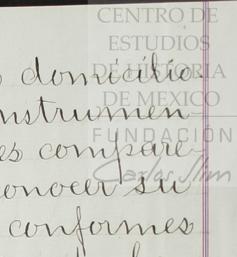 CENTRO DE
ESTUDIOS
DE HISTORIA
DE MEXICO
FUNDACIÓN
Carlos Slim
domicilio
nstrumen
es compare
onocer su
conformes